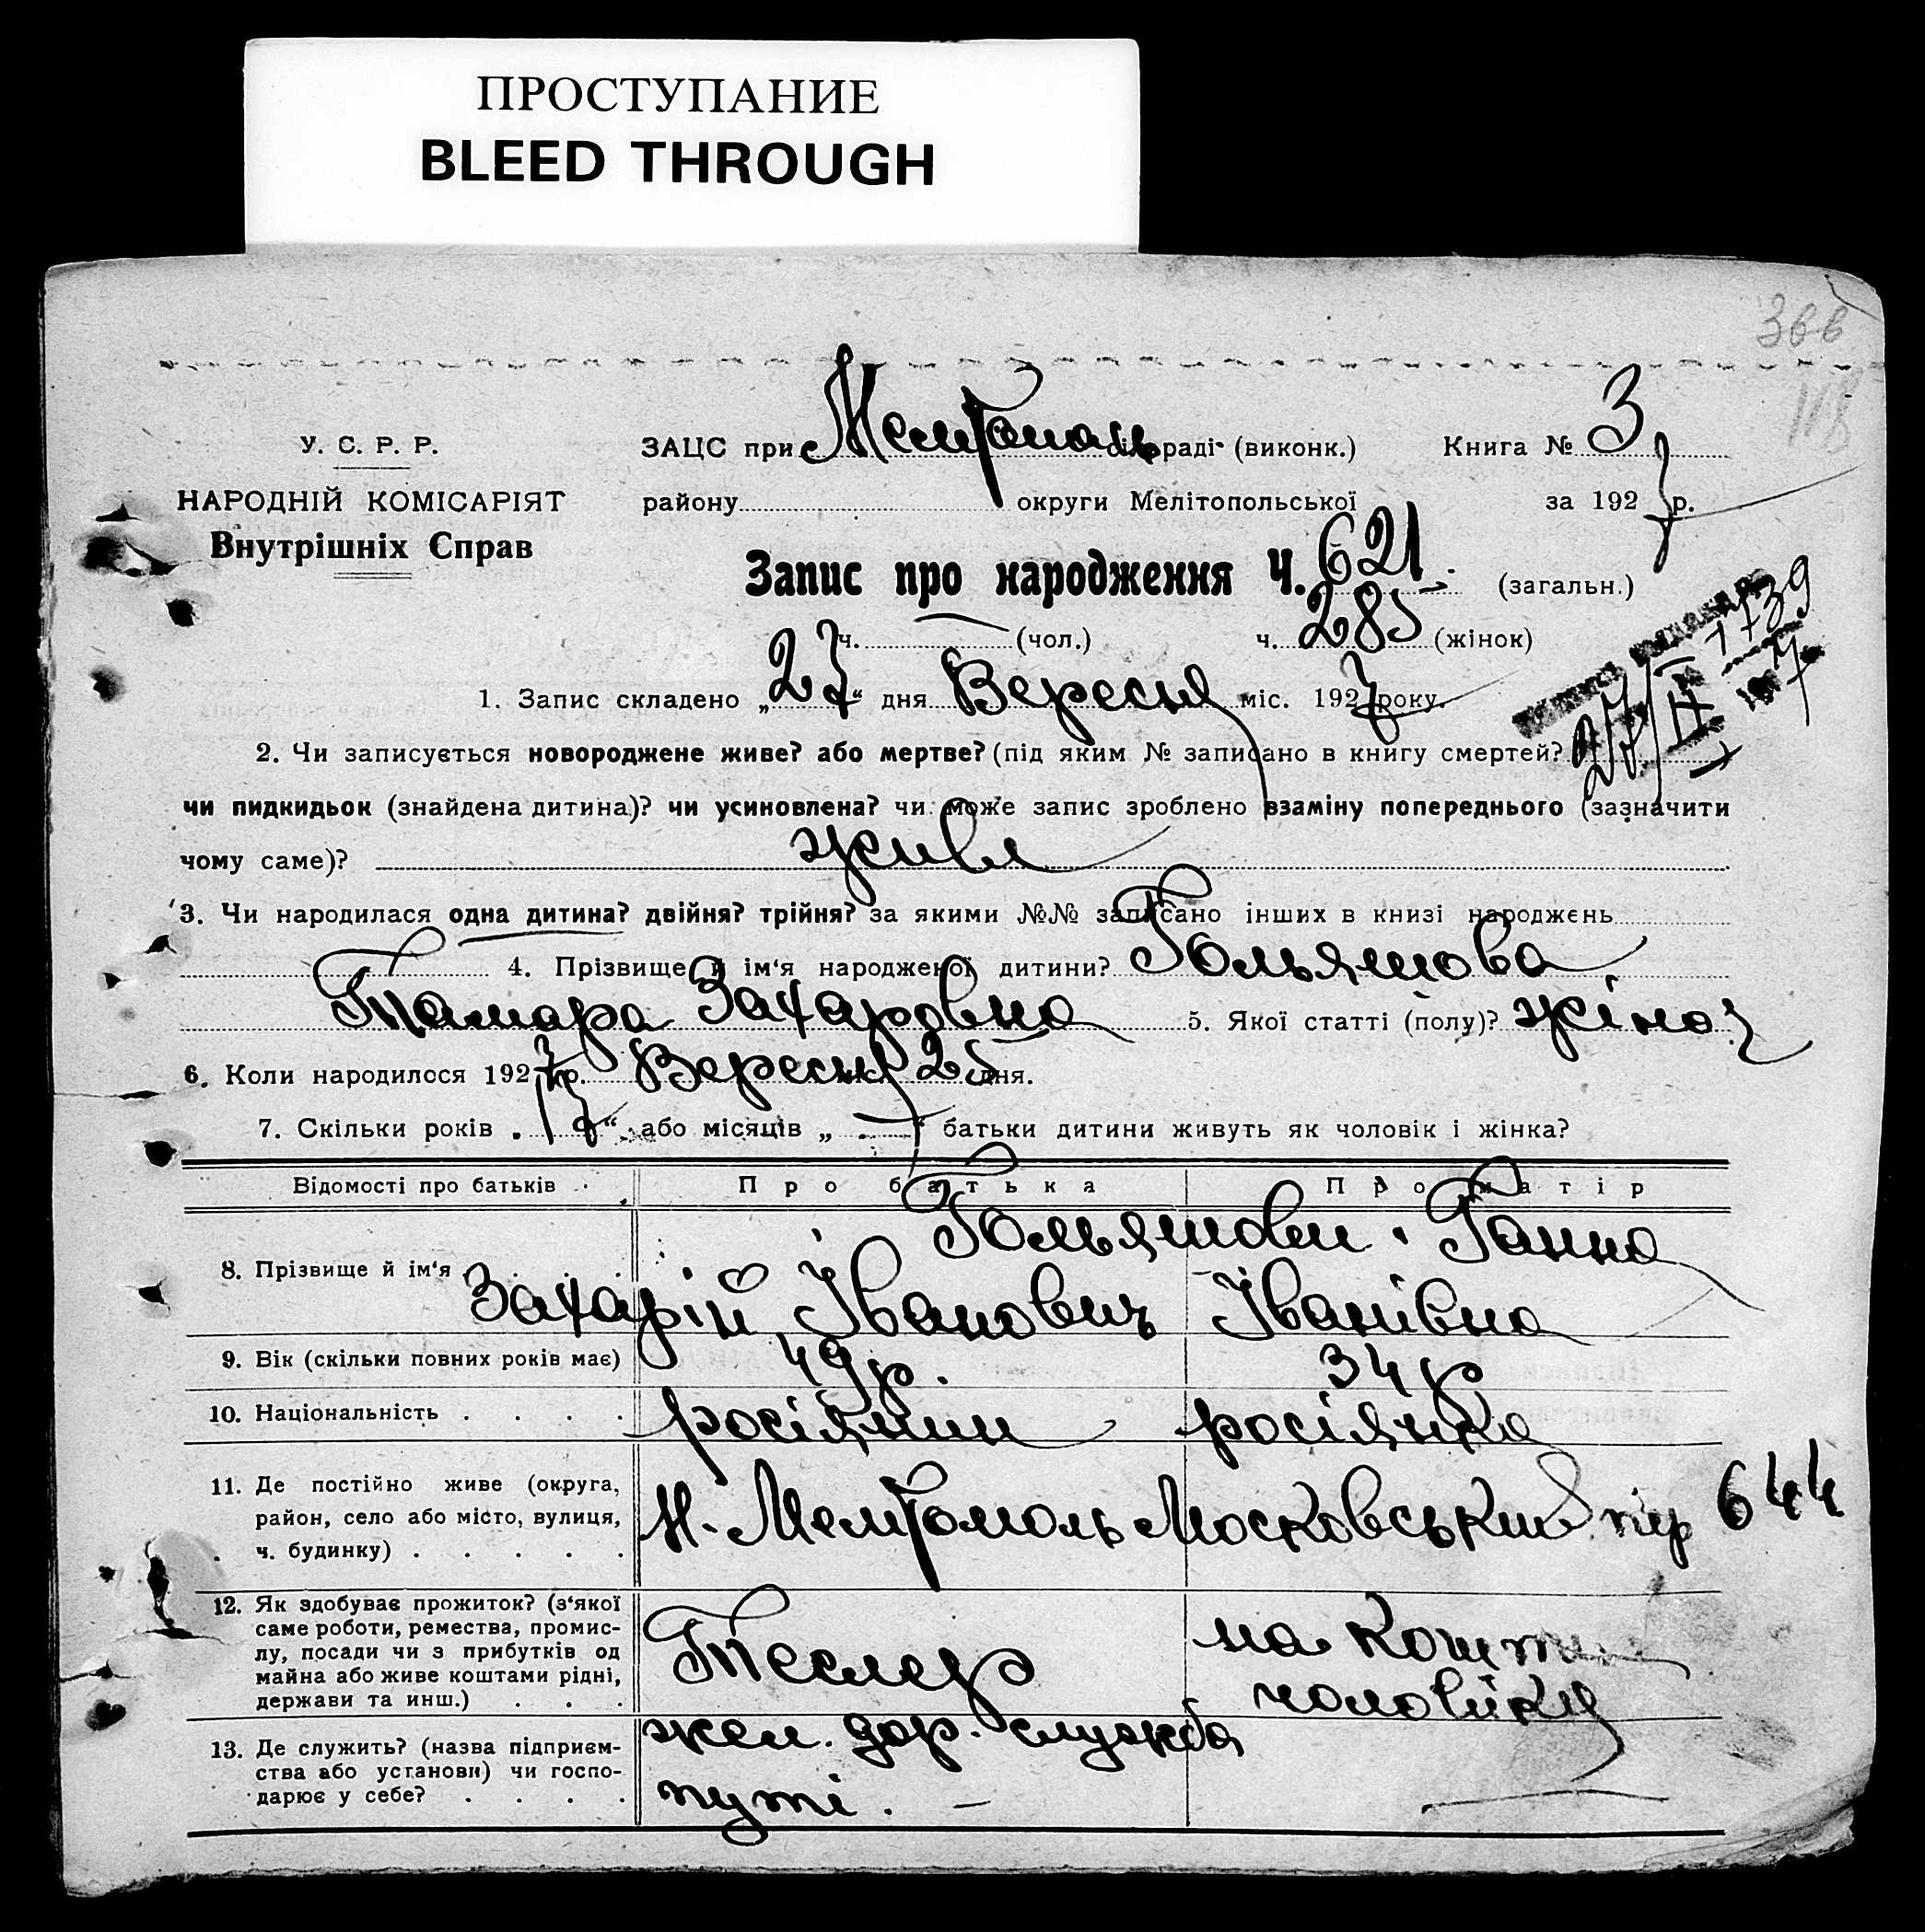 ПРОСТУПАНИЕ
BLEED THROUGH
У. С. Р. Р.
НАРОДНІЙ КОМІСАРІЯТ
Внутрішніх Справ
ЗАЦС при раді (виконк.) Книга № 3
району округи Мелітопольської за 1927 р.
Запис про народження Ч. 621 (загальн.)
ч. — (чол.) ч. 285 (жінок)
1. Запис складено „27“ дня Вересня міс. 1927 року.
2. Чи записується новороджене живе? або мертве? (під яким № записано в книгу смертей?
чи пидкидьок (знайдена дитина)? чи усиновлена? чи може запис зроблено взаміну попереднього (зазначити
чому саме)? живе
3. Чи народилася одна дитина? двійня? трійня? за якими №№ записано інших в книзі народжень
4. Прізвище й ім‘я народженої дитини? Гольяшова
Тамара Захаровна 5. Якої статті (полу)? жіноч
6. Коли народилося 1927 р. Вересня 25 дня.
7. Скільки років „17“ або місяців „—“ батьки дитини живуть як чоловік і жінка?
Відомості про батьків Про батька Про матір
8. Прізвище й ім‘я Гольяшови Ганна
Захарій Іванович Іванівна
9. Вік (скільки повних років має) 49 р. 34 р
10. Національність росіянин росіянка
11. Де постійно живе (округа, район, село або місто, вулиця, ч. будинку) Московський пер 644
12. Як здобуває прожиток? (з‘якої саме роботи, ремества, промислу, посади чи з прибутків од майна або живе коштами рідні, держави та инш.) Тесляр на кошти чоловіка
13. Де служить? (назва підприємства або установи) чи господарює у себе? жел. дор. служба путі. —